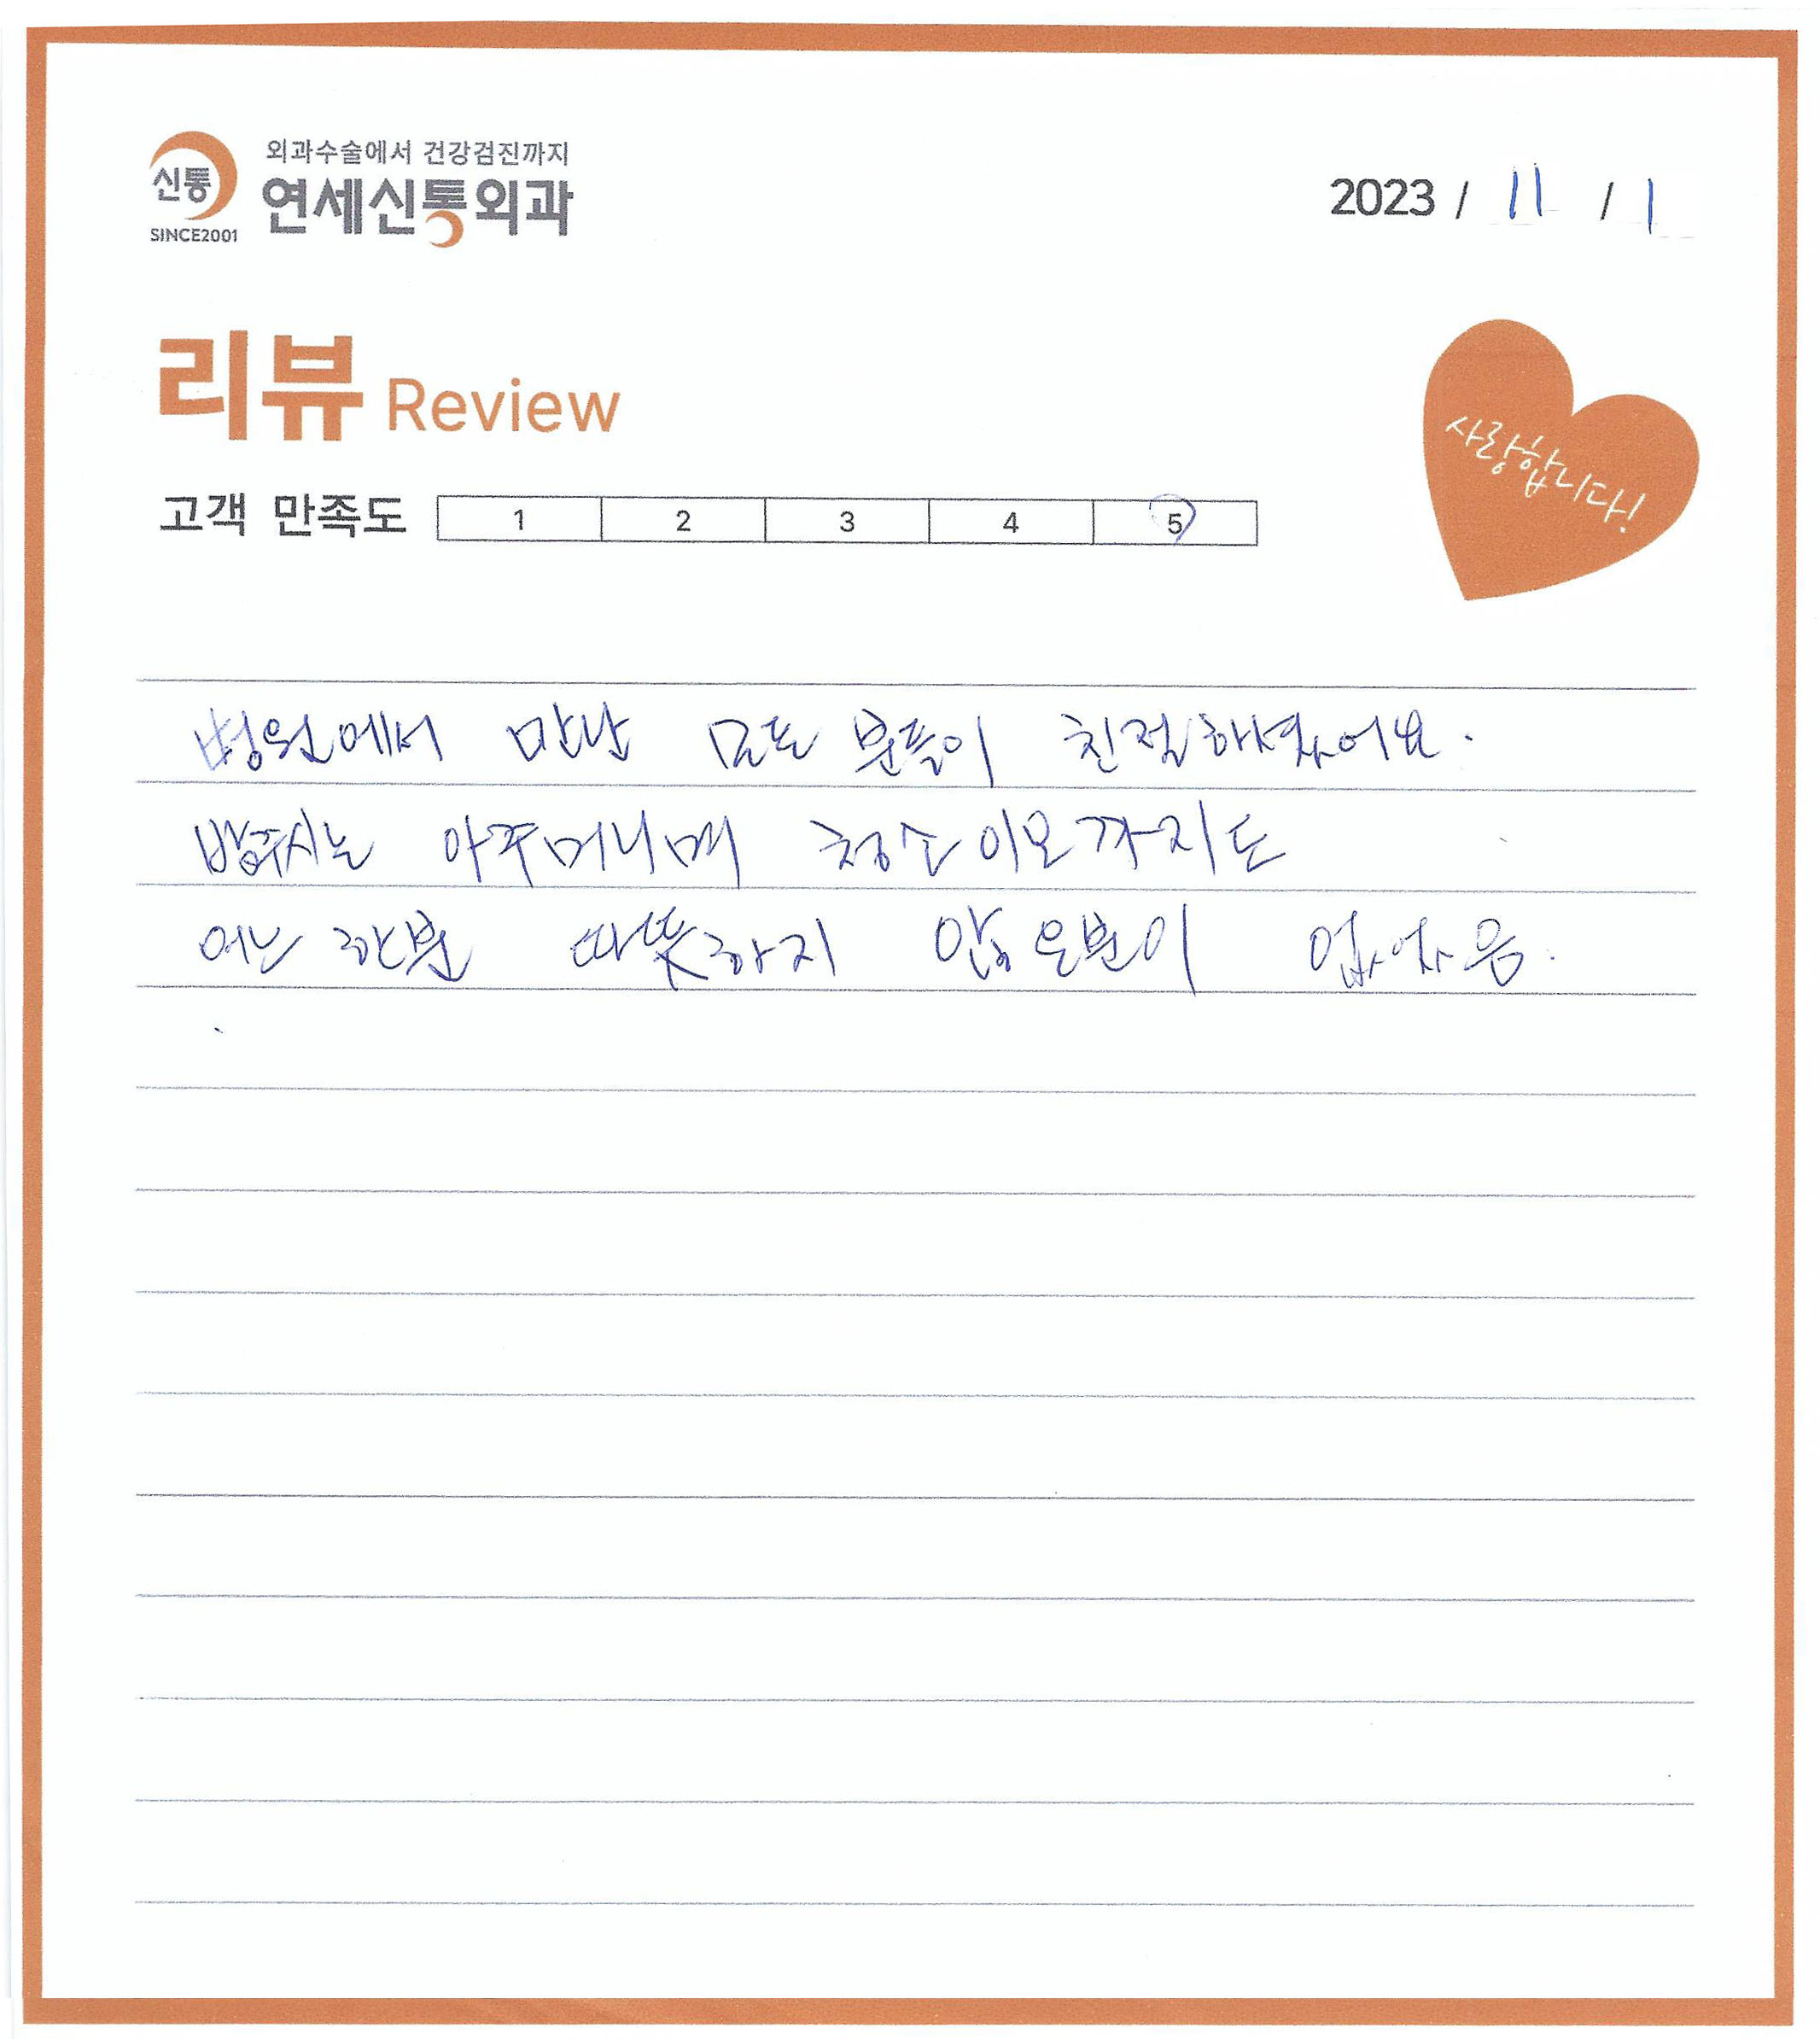 신통
SINCE2001
외과수술에서 건강검진까지
연세신통외과
2023 / 11 / 1
리뷰 Review
사랑합니다!
고객 만족도 1 2 3 4 5
병원에서 만난 모든 분들이 친절하셨어요.
밥주시는 아주머니며 청소이모까지도
어느 한분 따뜻하지 않은분이 없었음.